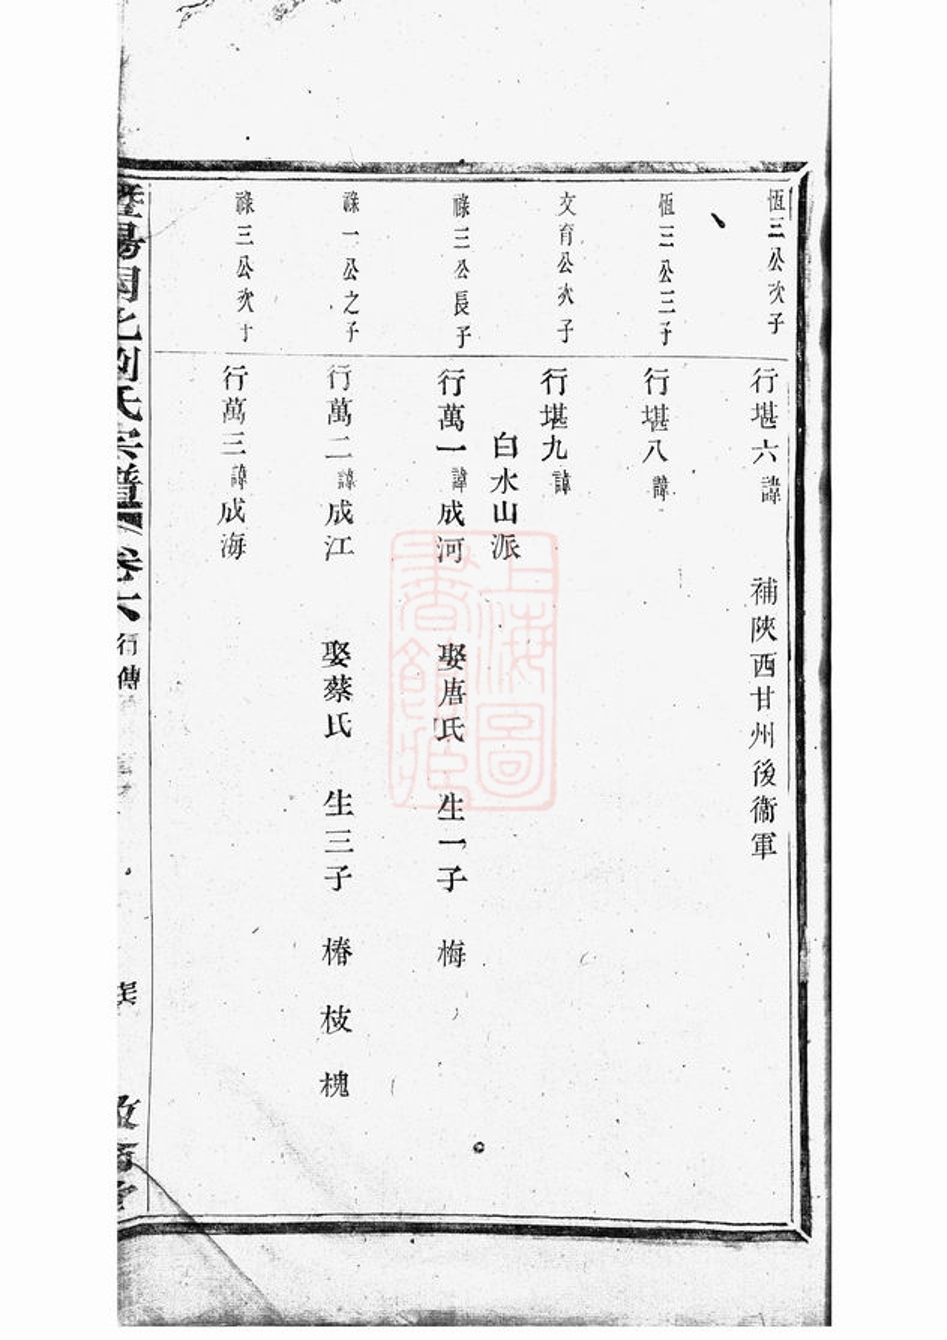 恆三公次子
行堪六諱 補陝西甘州後衞軍
恆三公三子
行堪八諱
文育公次子
行堪九諱
白水山派
祿三公長子
行萬一諱成河 娶唐氏 生一子 梅
祿一公之子
行萬二諱成江 娶蔡氏 生三子 椿 枝 槐
祿三公次
行萬三諱成海
氏宗譜 卷六 行傳
上海圖書館藏